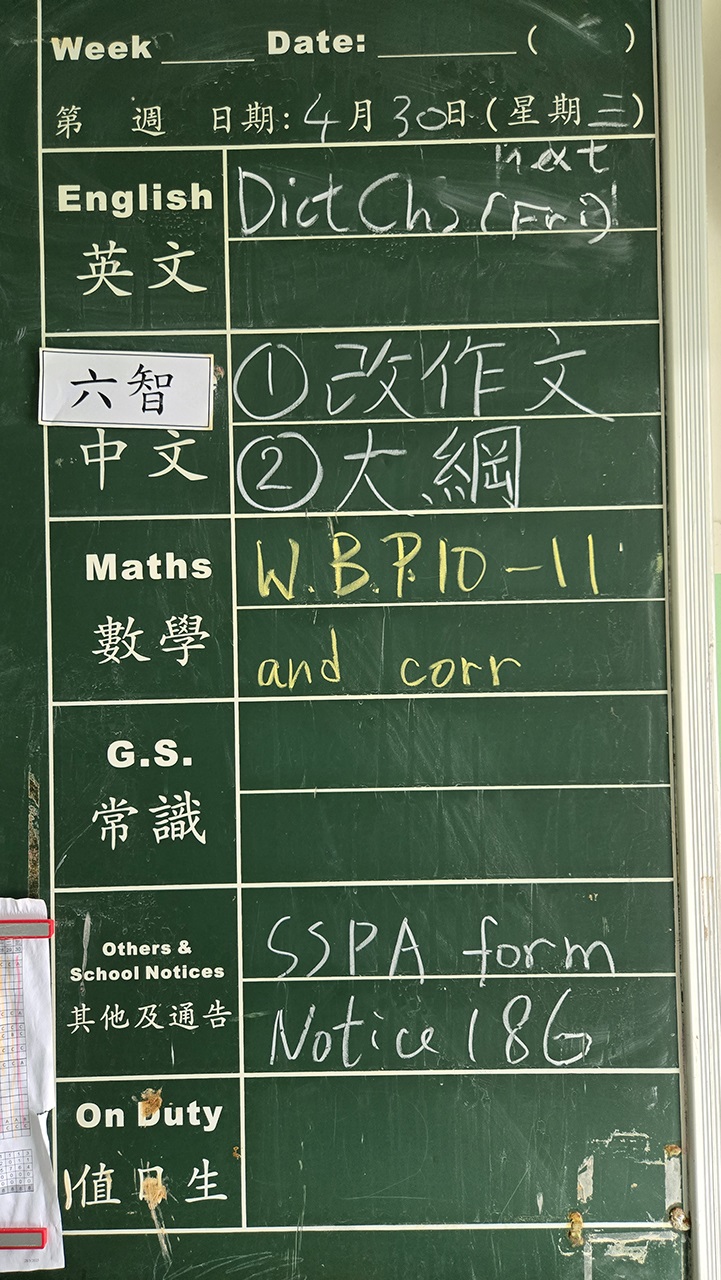 Week ____ Date: ______ (    )
第 週 日期: 4月30日(星期三)
next
English Dict Ch5 (Fri)
英文
六智 ①改作文
中文 ②大綱
Maths W.B.P.10-11
數學 and corr
G.S.
常識
Others & SSPA form
School Notices
其他及通告 Notice 186
On Duty
值日生